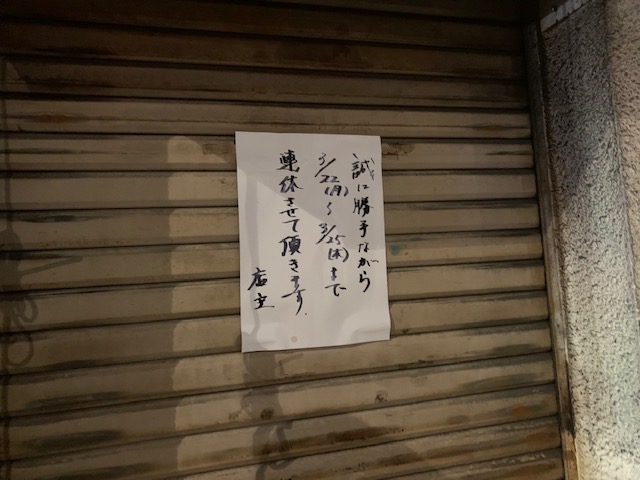 誠に勝手ながら
3/22(月)~3/25(木)まで
連休させて頂きます.
店主